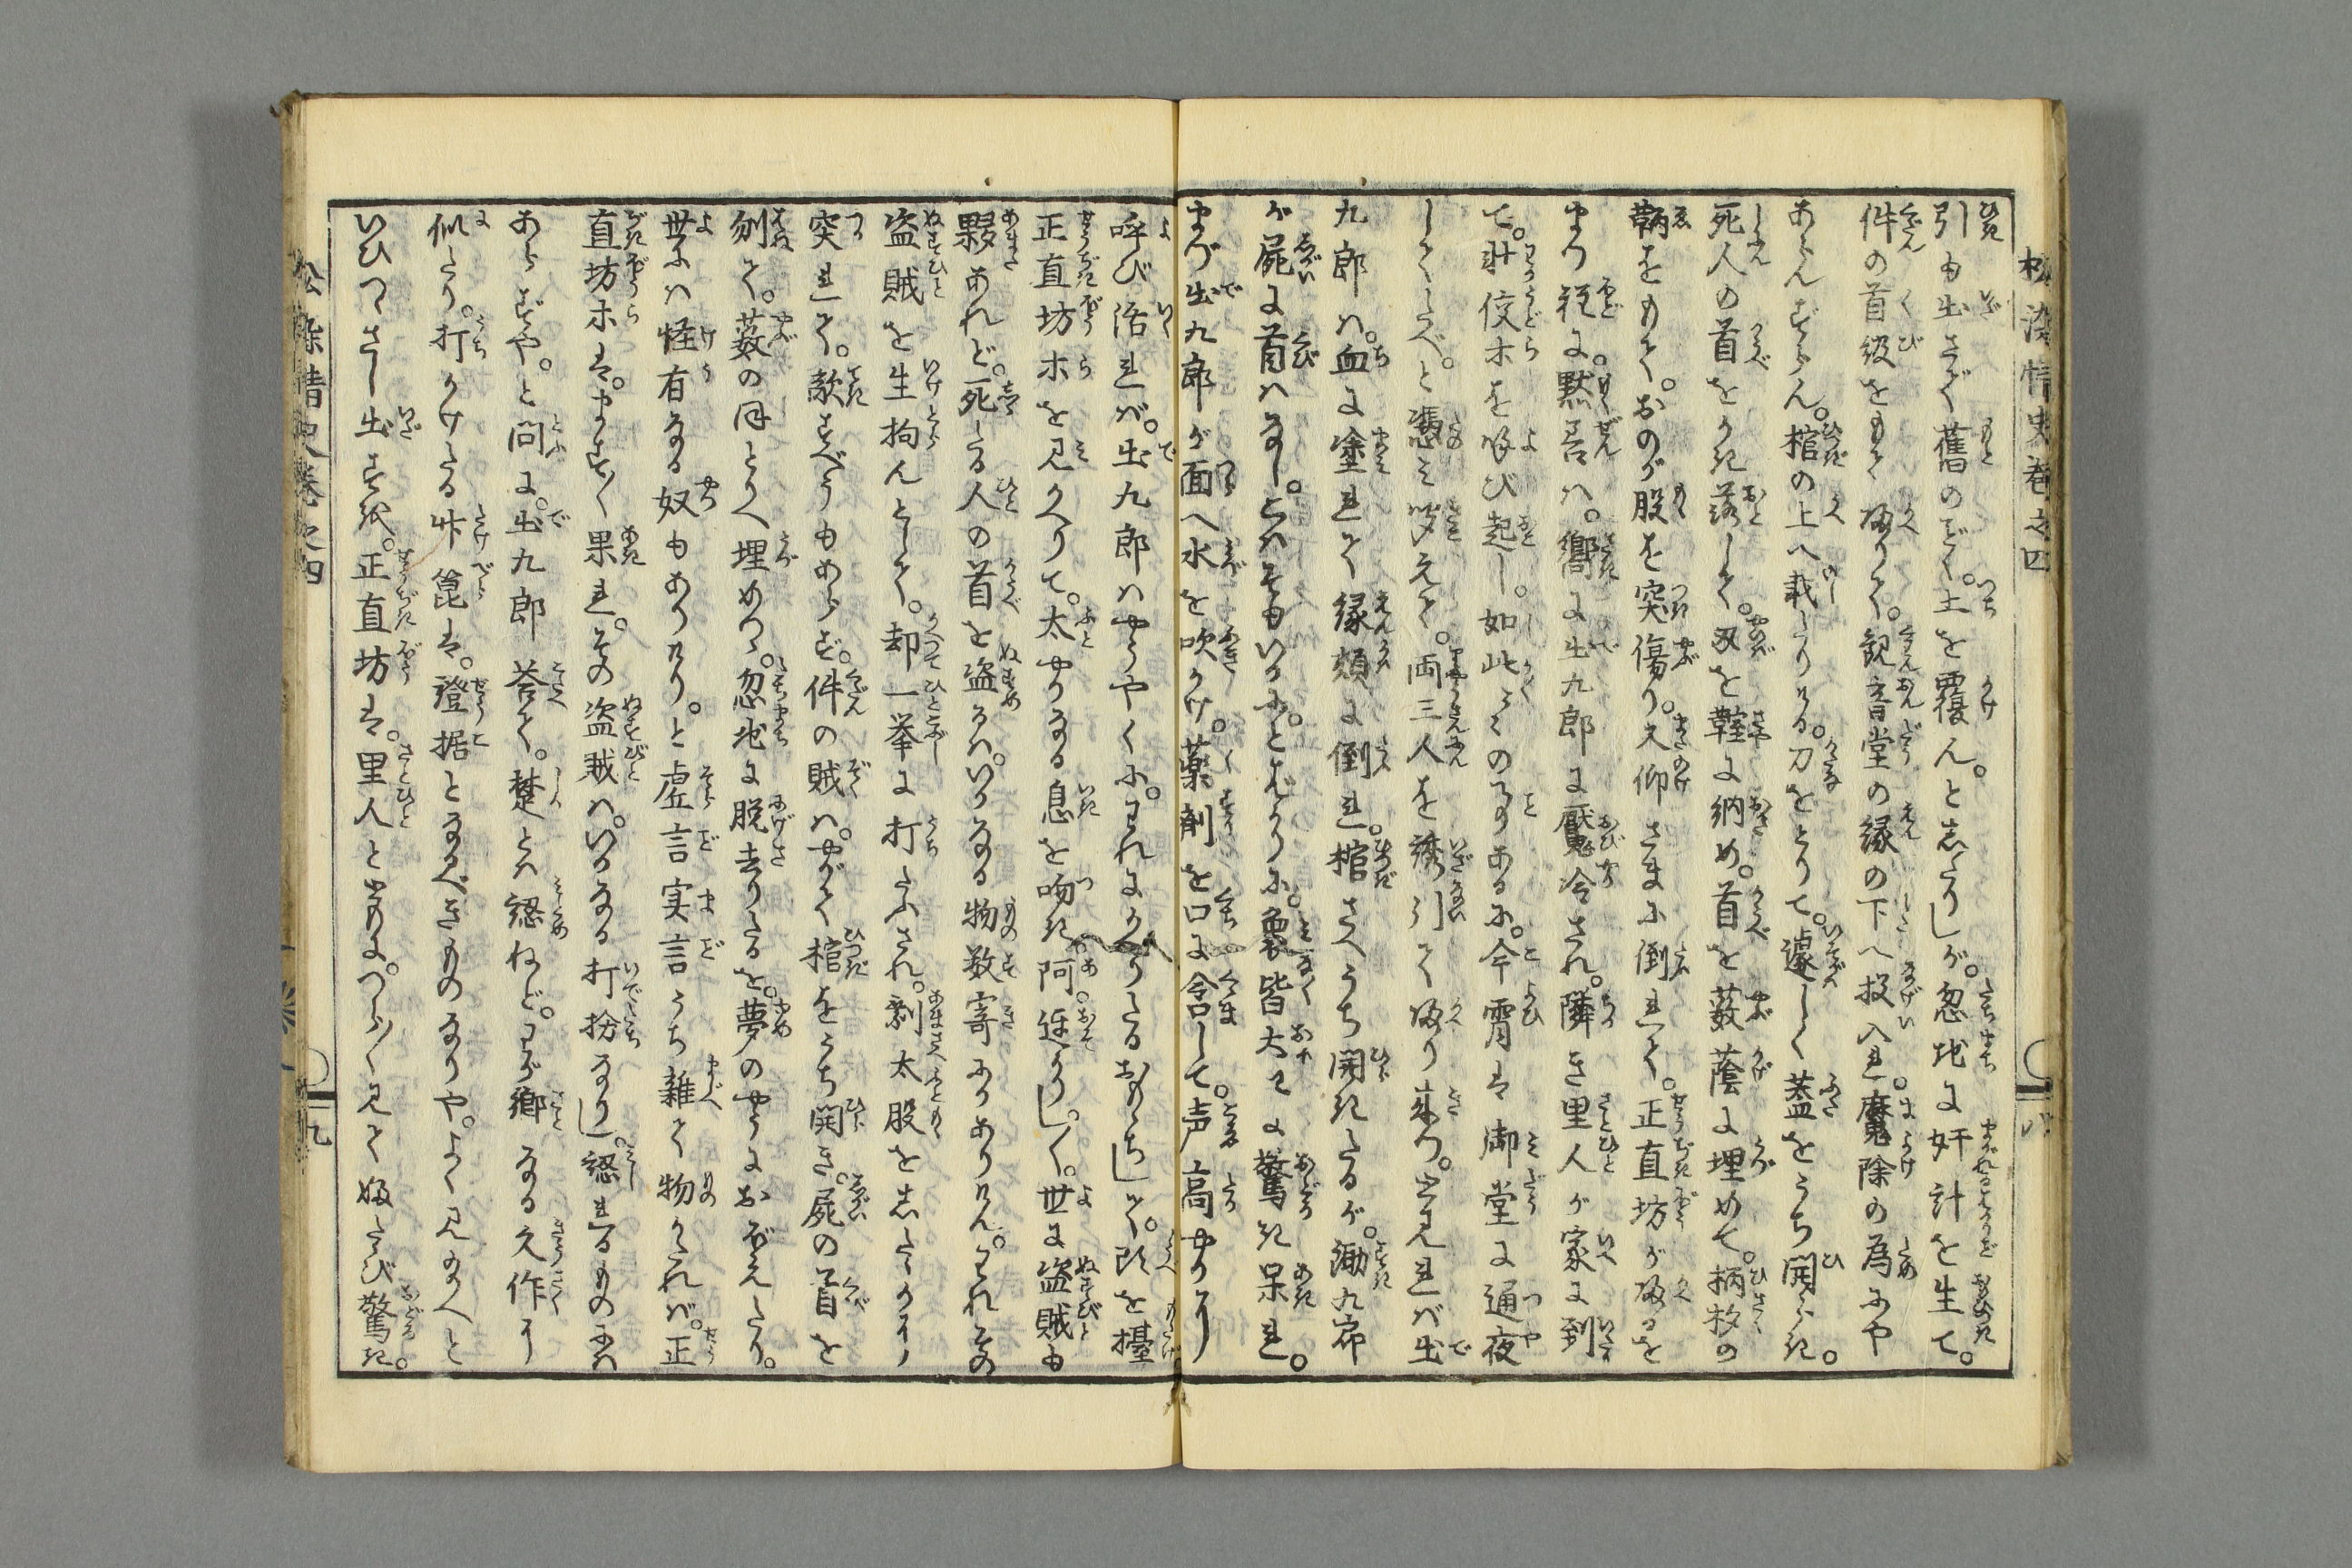 松染情史巻之四
八
引も出さで。舊のごとく。土を覆ん。としたりしが。忽地に奸計を生て。
件の首級をもて帰りて。観音堂の縁の下へ投入れ。魔除の為にや
あらんずらん。棺の上へ載たりける。刀をとりて。遽しく蓋をうち開き。
死人の首をかき落して。刃を鞘に納め。首を藪蔭に埋めて。柄杓の
柄をもて。おのが股を突傷り。又仰さまに倒れて。正直坊が帰るを
まつ程に。黙善は。嚮に出九郎に魘冷され。隣き里人が家に到
て。壮佼ホを呼び起し。如此々々の事あるに。今宵は御堂に通夜
してたべ。と憑み聞えて。両三人を誘引て帰り来つ。と見れば出
九郎は。血に塗れて縁頬に倒れ。棺さへうち開きたるが。鋤九郎
が屍に首はなし。こはそもいかに。とばかりに。衆皆大に驚き呆れ。
まづ出九郎が面へ水を吹かけ。薬剤を口に含して。声高やかに
呼び活れば。出九郎はやうやくに。われにかへりたるおももちしつ。頭を擡
正直坊ホを見かへりて。太やかなる息を吻き。阿。遅かりし〱。世に盗賊も
夥あれど。死たる人の首を盗るは。いかなる物数寄にかありけん。われその
盗賊を生拘んとして。却一挙に打たふされ。剰太股をしたゝかに
突れて。敵すべうもあらず。件の賊は。やがて棺をうち開き。屍の首を
刎て。藪の
世には怪有なる奴もありけり。と虚言実言うち雑て物がたれば。正
直坊ホは。ます〱果れ。その盗賊は。いかなる打扮なりし。認れるものには
あらずや。と問に。出九郎答て。楚とは認ねど。わが郷なる久作に
似たり。打かけたる竹篦は。證据となるべきものなりや。よく見給へと
いひつゝさし出すを。正直坊は。里人とゝもに。つら〱見て再び驚き。
松染情史巻之四
九